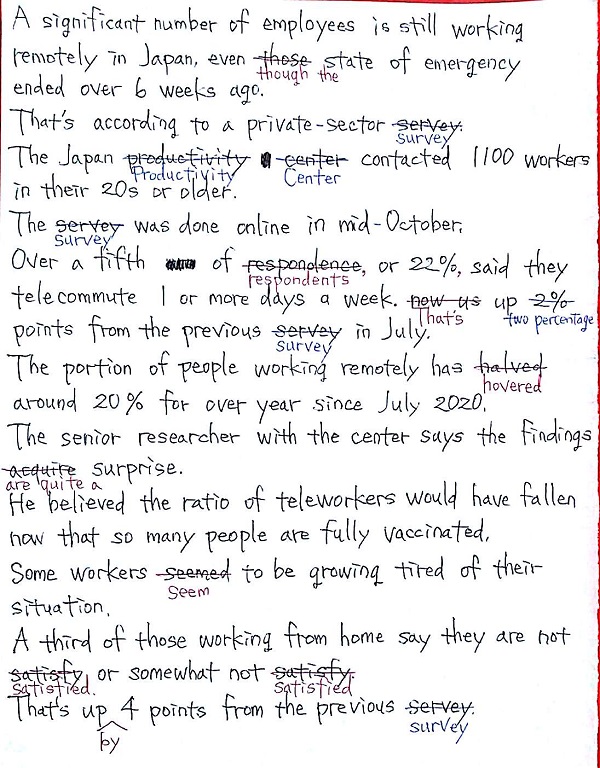 A significant number of employees is still working
remotely in Japan, even those state of emergency
though the
ended over 6 weeks ago.
That's according to a private-sector servey.
survey
The Japan productivity center contacted 1100 workers
Productivity Center
in their 20s or older.
The servey was done online in mid-October.
survey
Over a fifth of respondence, or 22%, said they
respondents
telecommute 1 or more days a week. now us up 2%
That's two percentage
points from the previous servey in July.
survey
The portion of people working remotely has halved
hovered
around 20% for over year since July 2020.
The senior researcher with the center says the findings
acquire surprise.
are quite a
He believed the ratio of teleworkers would have fallen
now that so many people are fully vaccinated.
Some workers seemed to be growing tired of their
seem
situation.
A third of those working from home say they are not
satisfy or somewhat not satisfy.
satisfied. satisfied
That's up 4 points from the previous servey.
by survey